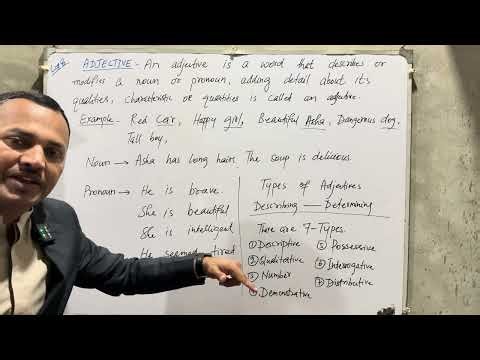 ADJECTIVE - An adjective is a word that describes or
modifies a noun or pronoun, adding detail about its
qualities, characteristic or quantities is called an adjective.
Example - Red Car, Happy girl, Beautiful Asha, Dangerous dog,
Tall boy,
Noun → Asha has long hairs. The soup is delicious
Pronoun → He is brave.
She is beautiful
She is intelligent
He seemed tired
Types of Adjectives
Describing — Determining
There are 7-Types.
① Descriptive
② Qualitative
③ Number
④ Demonstrative
⑤ Possessive
⑥ Interrogative
⑦ Distributive